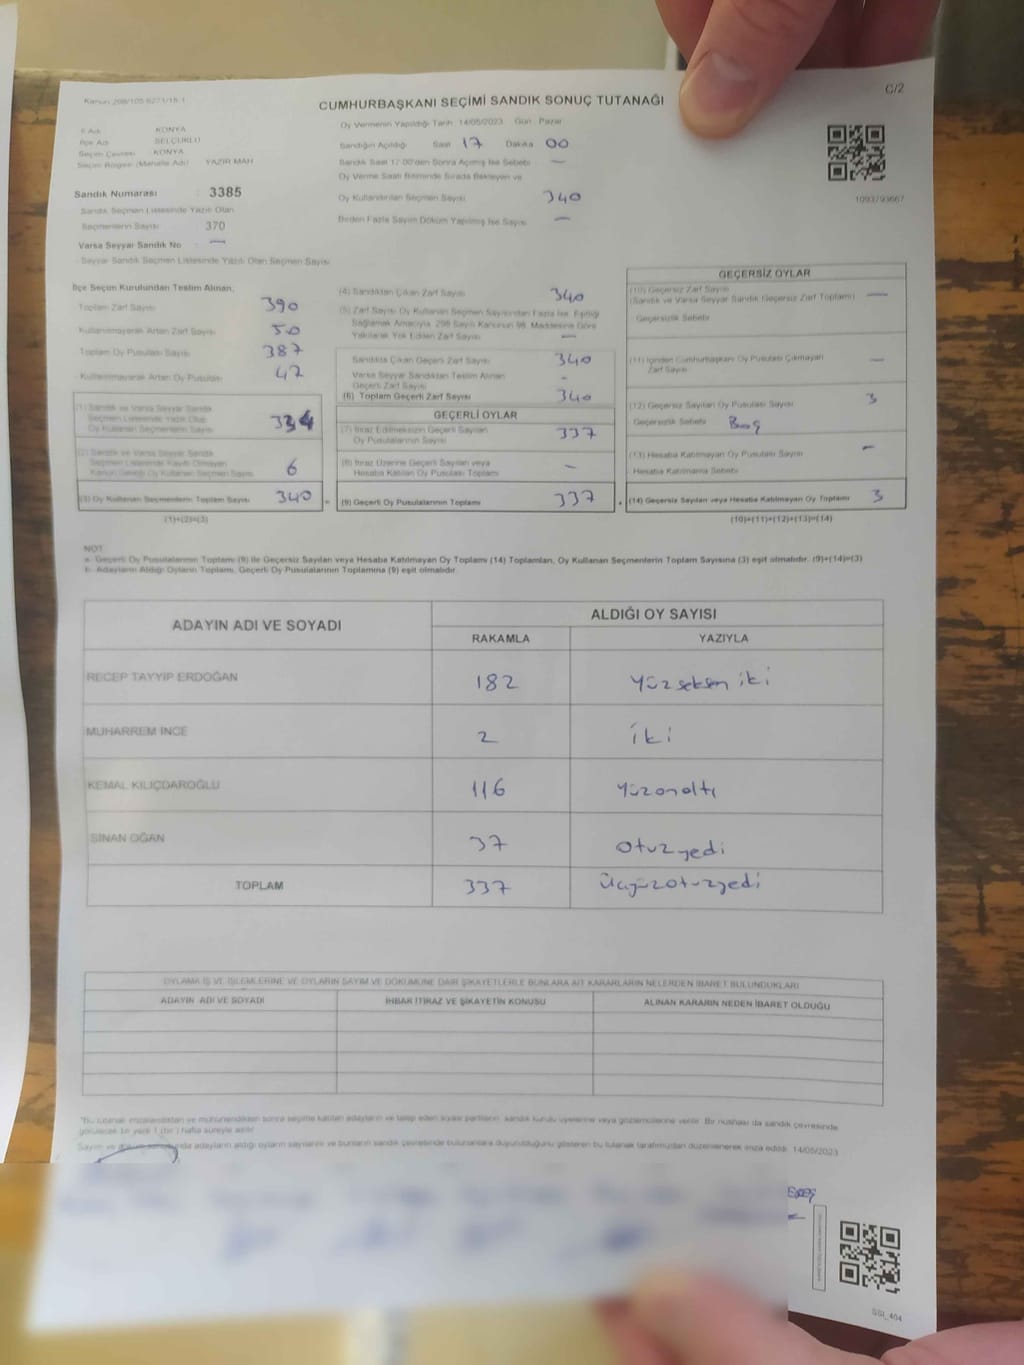 C/2
Kanun 298/105-6271/18-1
CUMHURBAŞKANI SEÇİMİ SANDIK SONUÇ TUTANAĞI
İl Adı KONYA
İlçe Adı SELÇUKLU
Seçim Çevresi KONYA
Seçim Bölgesi (Mahalle Adı) YAZIR MAH
Sandık Numarası : 3385
Sandık Seçmen Listesinde Yazılı Olan
Seçmenlerin Sayısı 370
Varsa Seyyar Sandık No —
Seyyar Sandık Seçmen Listesinde Yazılı Olan Seçmen Sayısı
Oy Vermenin Yapıldığı Tarih 14/05/2023 Gün Pazar
Sandığın Açıldığı Saat 17 Dakika 00
Sandık Saat 17:00'den Sonra Açılmış İse Sebebi —
Oy Verme Saati Bitiminde Sırada Bekleyen ve
Oy Kullandırılan Seçmen Sayısı 340
Birden Fazla Sayım Döküm Yapılmış İse Sayısı —
1093793667
İlçe Seçim Kurulundan Teslim Alınan,
Toplam Zarf Sayısı 390
Kullanılmayarak Artan Zarf Sayısı 50
Toplam Oy Pusulası Sayısı 387
Kullanılmayarak Artan Oy Pusulası 47
(1) Sandık ve Varsa Seyyar Sandık
Seçmen Listesinde Yazılı Olup
Oy Kullanan Seçmenlerin Sayısı 334
(2) Sandık ve Varsa Seyyar Sandık
Seçmen Listesinde Kayıtlı Olmayan
Kanun Gereği Oy Kullanan Seçmen Sayısı 6
(3) Oy Kullanan Seçmenlerin Toplam Sayısı 340
(1)+(2)=(3)
(4) Sandıktan Çıkan Zarf Sayısı 340
(5) Zarf Sayısı Oy Kullanan Seçmen Sayısından Fazla İse, Eşitliği
Sağlamak Amacıyla, 298 Sayılı Kanunun 98. Maddesine Göre
Yakılarak Yok Edilen Zarf Sayısı —
Sandıkta Çıkan Geçerli Zarf Sayısı 340
Varsa Seyyar Sandıktan Teslim Alınan
Geçerli Zarf Sayısı -
(6) Toplam Geçerli Zarf Sayısı 340
GEÇERLİ OYLAR
(7) İtiraz Edilmeksizin Geçerli Sayılan
Oy Pusulalarının Sayısı 337
(8) İtiraz Üzerine Geçerli Sayılan veya
Hesaba Katılan Oy Pusulası Toplamı —
= (9) Geçerli Oy Pusulalarının Toplamı 337
GEÇERSİZ OYLAR
(10) Geçersiz Zarf Sayısı
(Sandık ve Varsa Seyyar Sandık Geçersiz Zarf Toplamı) —
Geçersizlik Sebebi
(11) İçinden Cumhurbaşkanı Oy Pusulası Çıkmayan
Zarf Sayısı —
(12) Geçersiz Sayılan Oy Pusulası Sayısı 3
Geçersizlik Sebebi Boş
(13) Hesaba Katılmayan Oy Pusulası Sayısı —
Hesaba Katılmama Sebebi
+ (14) Geçersiz Sayılan veya Hesaba Katılmayan Oy Toplamı 3
(10)+(11)+(12)+(13)=(14)
NOT:
a- Geçerli Oy Pusulalarının Toplamı (9) ile Geçersiz Sayılan veya Hesaba Katılmayan Oy Toplamı (14) Toplamları, Oy Kullanan Seçmenlerin Toplam Sayısına (3) eşit olmalıdır. (9)+(14)=(3)
b- Adayların Aldığı Oyların Toplamı, Geçerli Oy Pusulalarının Toplamına (9) eşit olmalıdır.
ADAYIN ADI VE SOYADI ALDIĞI OY SAYISI
RAKAMLA YAZIYLA
RECEP TAYYİP ERDOĞAN 182 yüzseksen iki
MUHARREM İNCE 2 iki
KEMAL KILIÇDAROĞLU 116 yüzonaltı
SİNAN OĞAN 37 otuzyedi
TOPLAM 337 üçyüzotuzyedi
OYLAMA İŞ VE İŞLEMLERİNE VE OYLARIN SAYIM VE DÖKÜMÜNE DAİR ŞİKAYETLERLE BUNLARA AİT KARARLARIN NELERDEN İBARET BULUNDUKLARI
ADAYIN ADI VE SOYADI İHBAR İTİRAZ VE ŞİKAYETİN KONUSU ALINAN KARARIN NEDEN İBARET OLDUĞU
*Bu tutanak imzalandıktan ve mühürlendikten sonra seçime katılan adayların ve talep eden siyasi partilerin sandık kurulu üyelerine veya gözlemcilerine verilir. Bir nüshası da sandık çevresinde
görülecek bir yerde 1 (bir) hafta süreyle asılır.
Sayım ve döküm sonucunda adayların aldığı oyların sayılarını ve bunların sandık çevresinde bulunanlara duyurulduğunu gösteren bu tutanak tarafımızdan düzenlenerek imza edildi. 14/05/2023
SGI_404